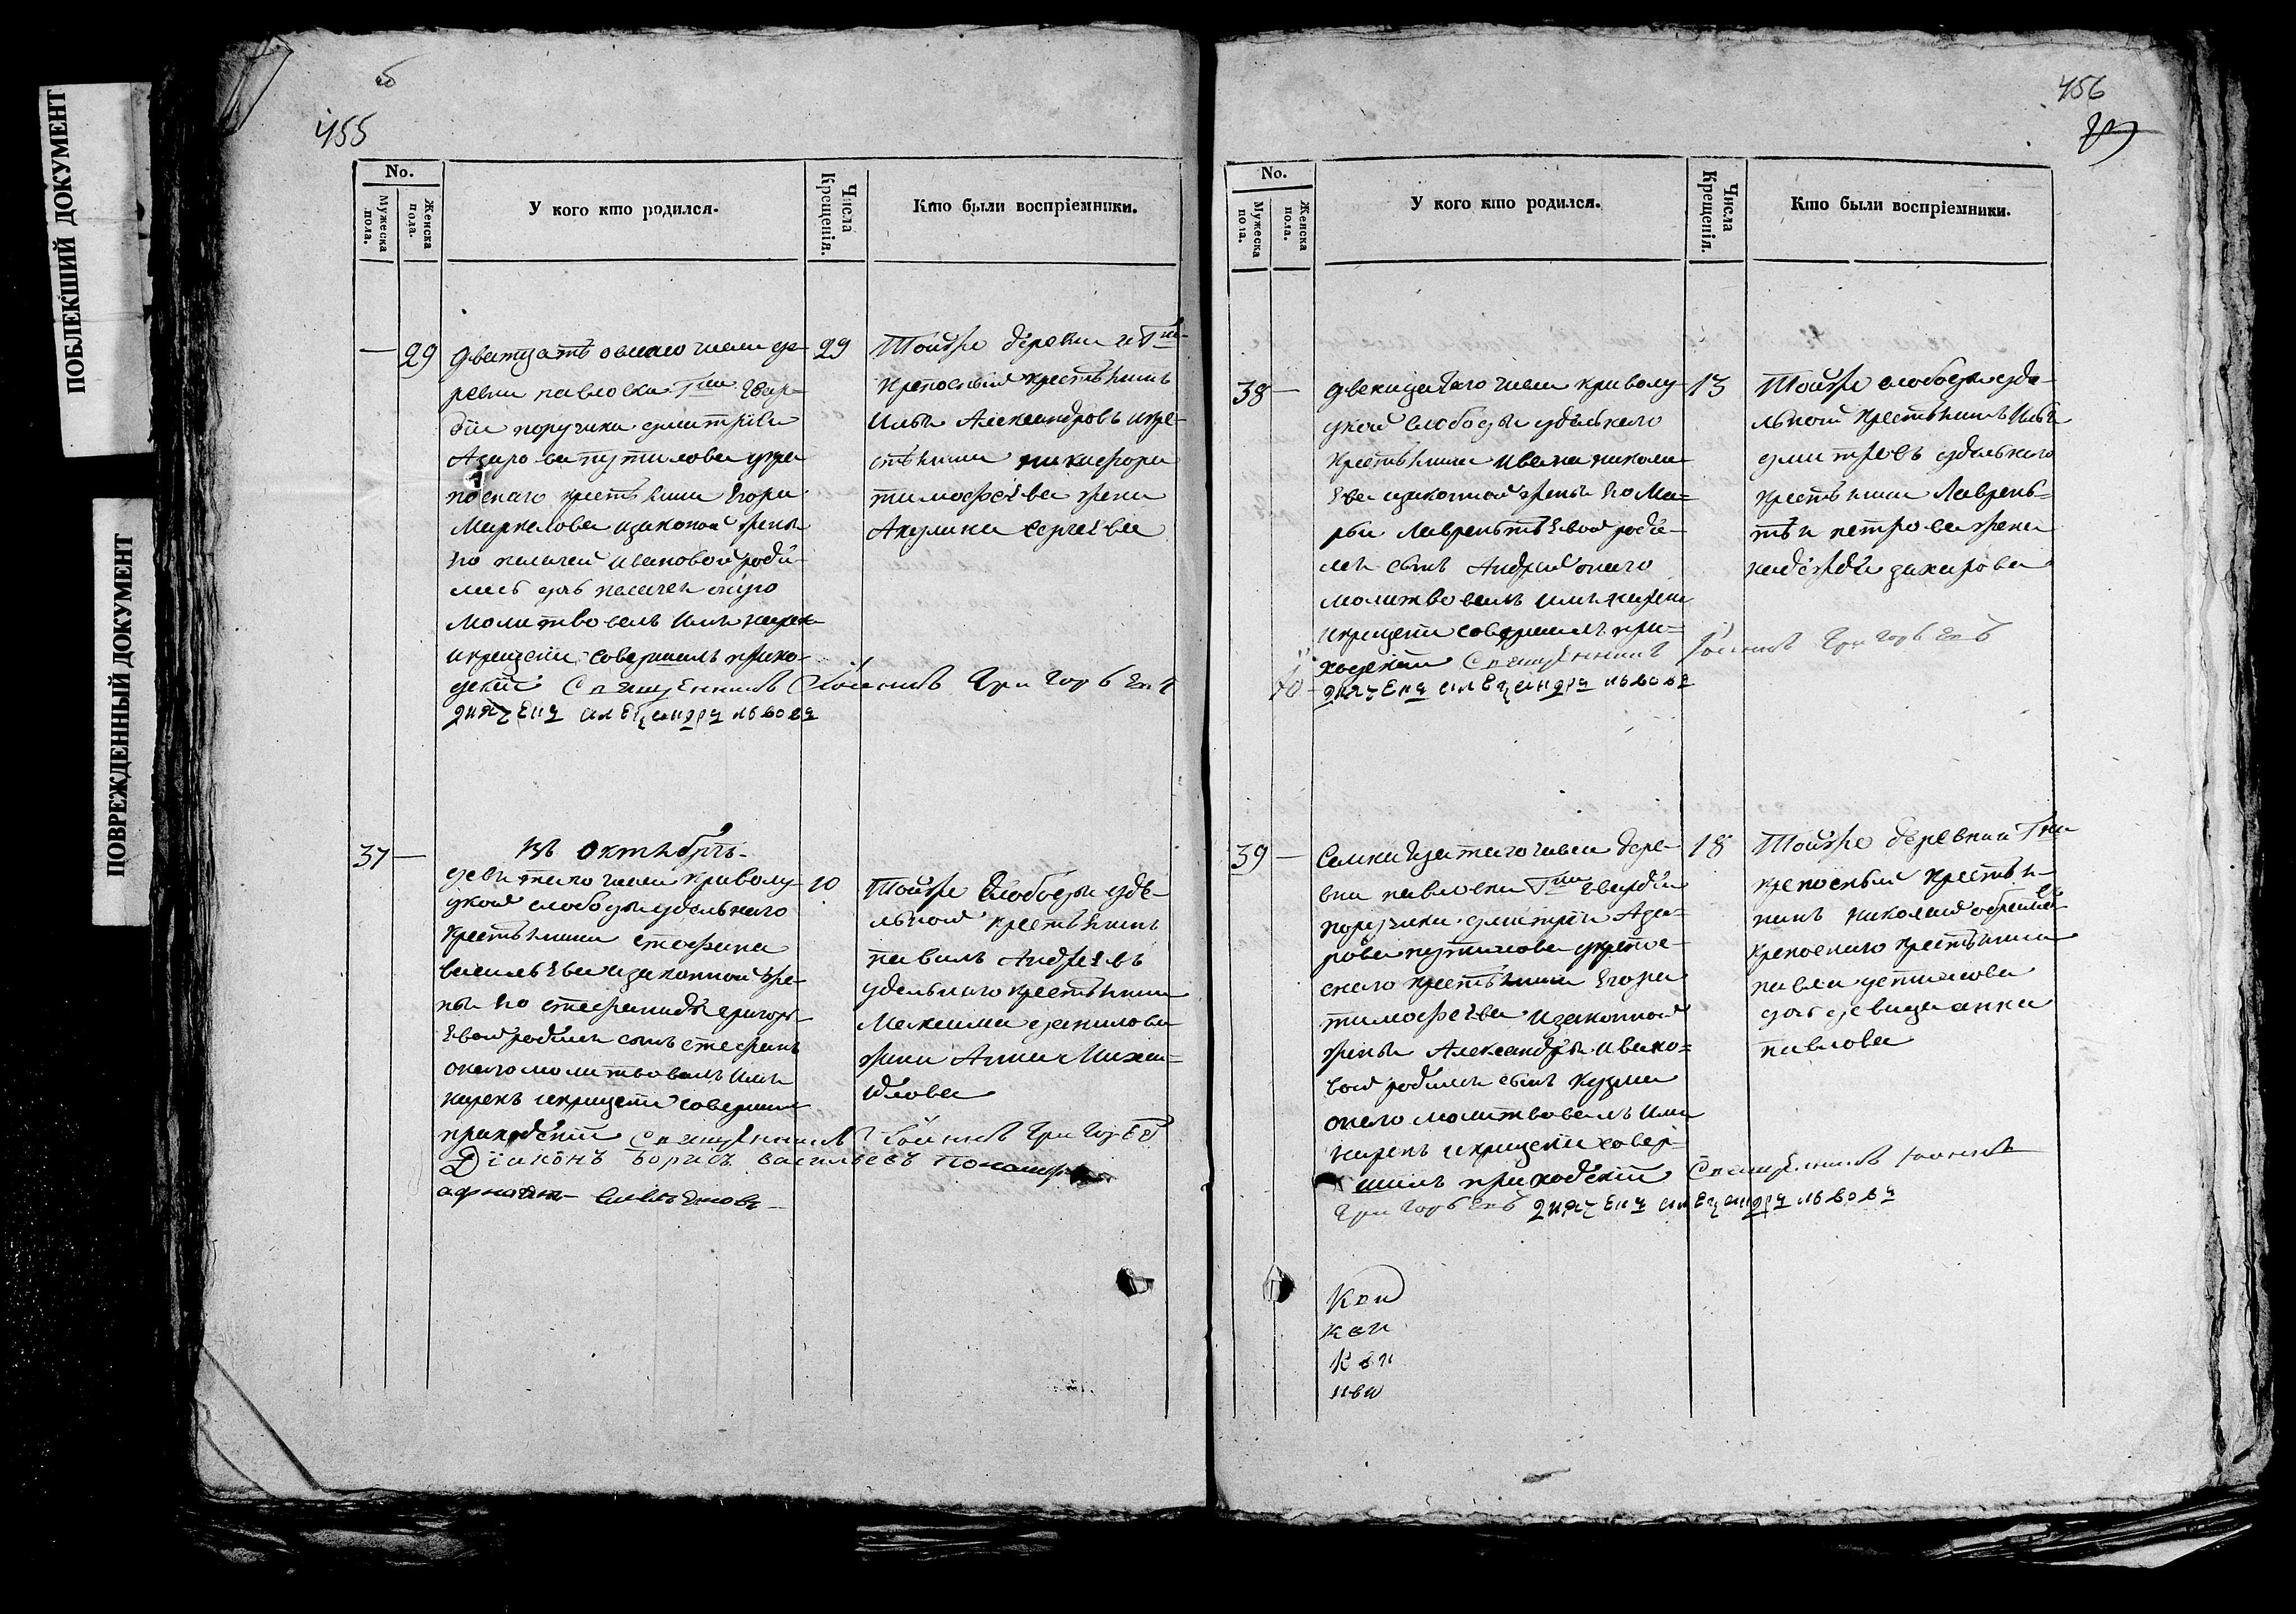 ПОБЛЕКШИЙ ДОКУМЕНТ
ПОВРЕЖДЕННЫЙ ДОКУМЕНТ
455
No.
Мужеска пола.
Женска пола.
У кого кто родился.
Числа Крещенія.
Кто были воспріемники.
29
дватцать осмаго числа де-
ревни павловки Гна Гвар-
діи порутчика дмитрія
Азаро ва путилова укре
поснаго крестьянина Егора
Маркелова изаконой жены
Его пелагеи ивановой роди-
лась дочь пелагея оную
молитвовалъ имя нарек
икрещеніе совершилъ прихо-
дскій Священникъ Іоаннъ Григорьевъ
Александра львовъ
29
Тойже деревни Гна
крепосный крестьянинъ
Илья Александровъ икре-
стьянина никифора
тимофеева жена
Акулина сергеева
37
въ Октябръ
девятаго числа криволу
цкой слободы удельнаго
крестьянина стефана
васильева изаконной же-
ны Его стефаниды григорь
Евой родился сынъ стефанъ
онаго молитвовалъ имя
нарекъ икрещеніе совершилъ
приходскій Священникъ Іоаннъ Григорьевъ
Діаконъ Борисъ васильевъ Пономарь
10
Тойже Слободы уде-
льной крестьянинъ
павилъ Андреевъ
удельнаго крестьянина
Максима данилова
жена Анна Миха-
йлова
456
No.
Мужеска пола.
Женска пола.
У кого кто родился.
Числа Крещенія.
Кто были воспріемники.
38
двенадцатаго числа криволу
цкой слободы удельнаго
крестьянина ивана никола
Ева изаконной жены Его Ма=
рьи Лаврентьевой роди-
лся сынъ Андрей онаго
молитвовалъ имя нарекъ
икрещеніе совершилъ при=
ходскій Священникъ Іоаннъ Григорьевъ
Александра львова
13
Тойже слободы уде-
льной крестьянинъ Илья
дмитревъ удельнаго
крестьянина Лаврень=
тья петрова жена
надежда захарова
39
Семнадцатаго числа дере-
вни павловки Гна Гвардіи
порутчика дмитрія Аза=
рова путилова укрепо-
снаго крестьянина Егора
тимофеева изаконной
жены Александры ивано=
вой родился сынъ кузма
онаго молитвовалъ имя
нарекъ икрещеніе совер-
шилъ приходскій Священникъ Іоаннъ
Григорьевъ Александра львова
18
Тойже деревни Гна
крепосный крестья-
нинъ николай ефремовъ
крепоснаго крестьянина
павла устинова
дочь девица анна
павлова